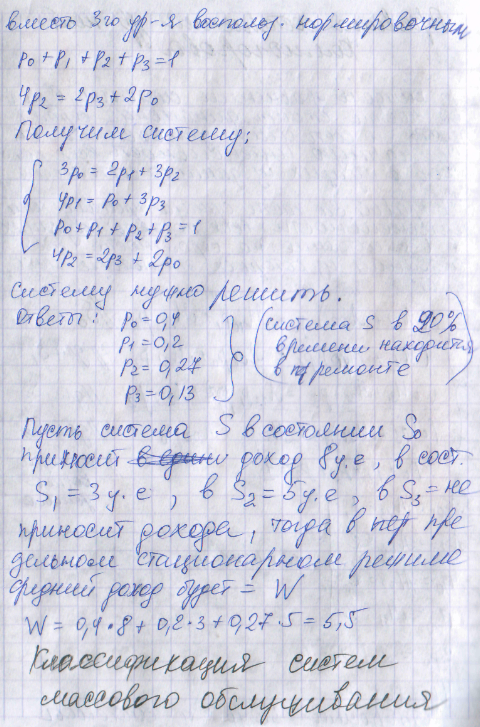 вместь 3го ур-я восполоз. нормировочным
p₀ + p₁ + p₂ + p₃ = 1
4p₂ = 2p₃ + 2p₀
Получим систему:
3p₀ = 2p₁ + 3p₂
4p₁ = p₀ + 3p₃
p₀ + p₁ + p₂ + p₃ = 1
4p₂ = 2p₃ + 2p₀
систему нужно решить.
ответы: p₀ = 0,4
p₁ = 0,2
p₂ = 0,27
p₃ = 0,13
(система S в 20%
времени находится
в ремонте)
Пусть система S в состоянии S₀
приносит доход 8 у.е, в сост.
S₁ = 3 у.е, в S₂ = 5 у.е, в S₃ = не
приносит дохода, тогда в пре
дельном стационарном режиме
средний доход будет = W
W = 0,4·8 + 0,2·3 + 0,27·5 = 5,5
Классификация систем
массового обслуживания